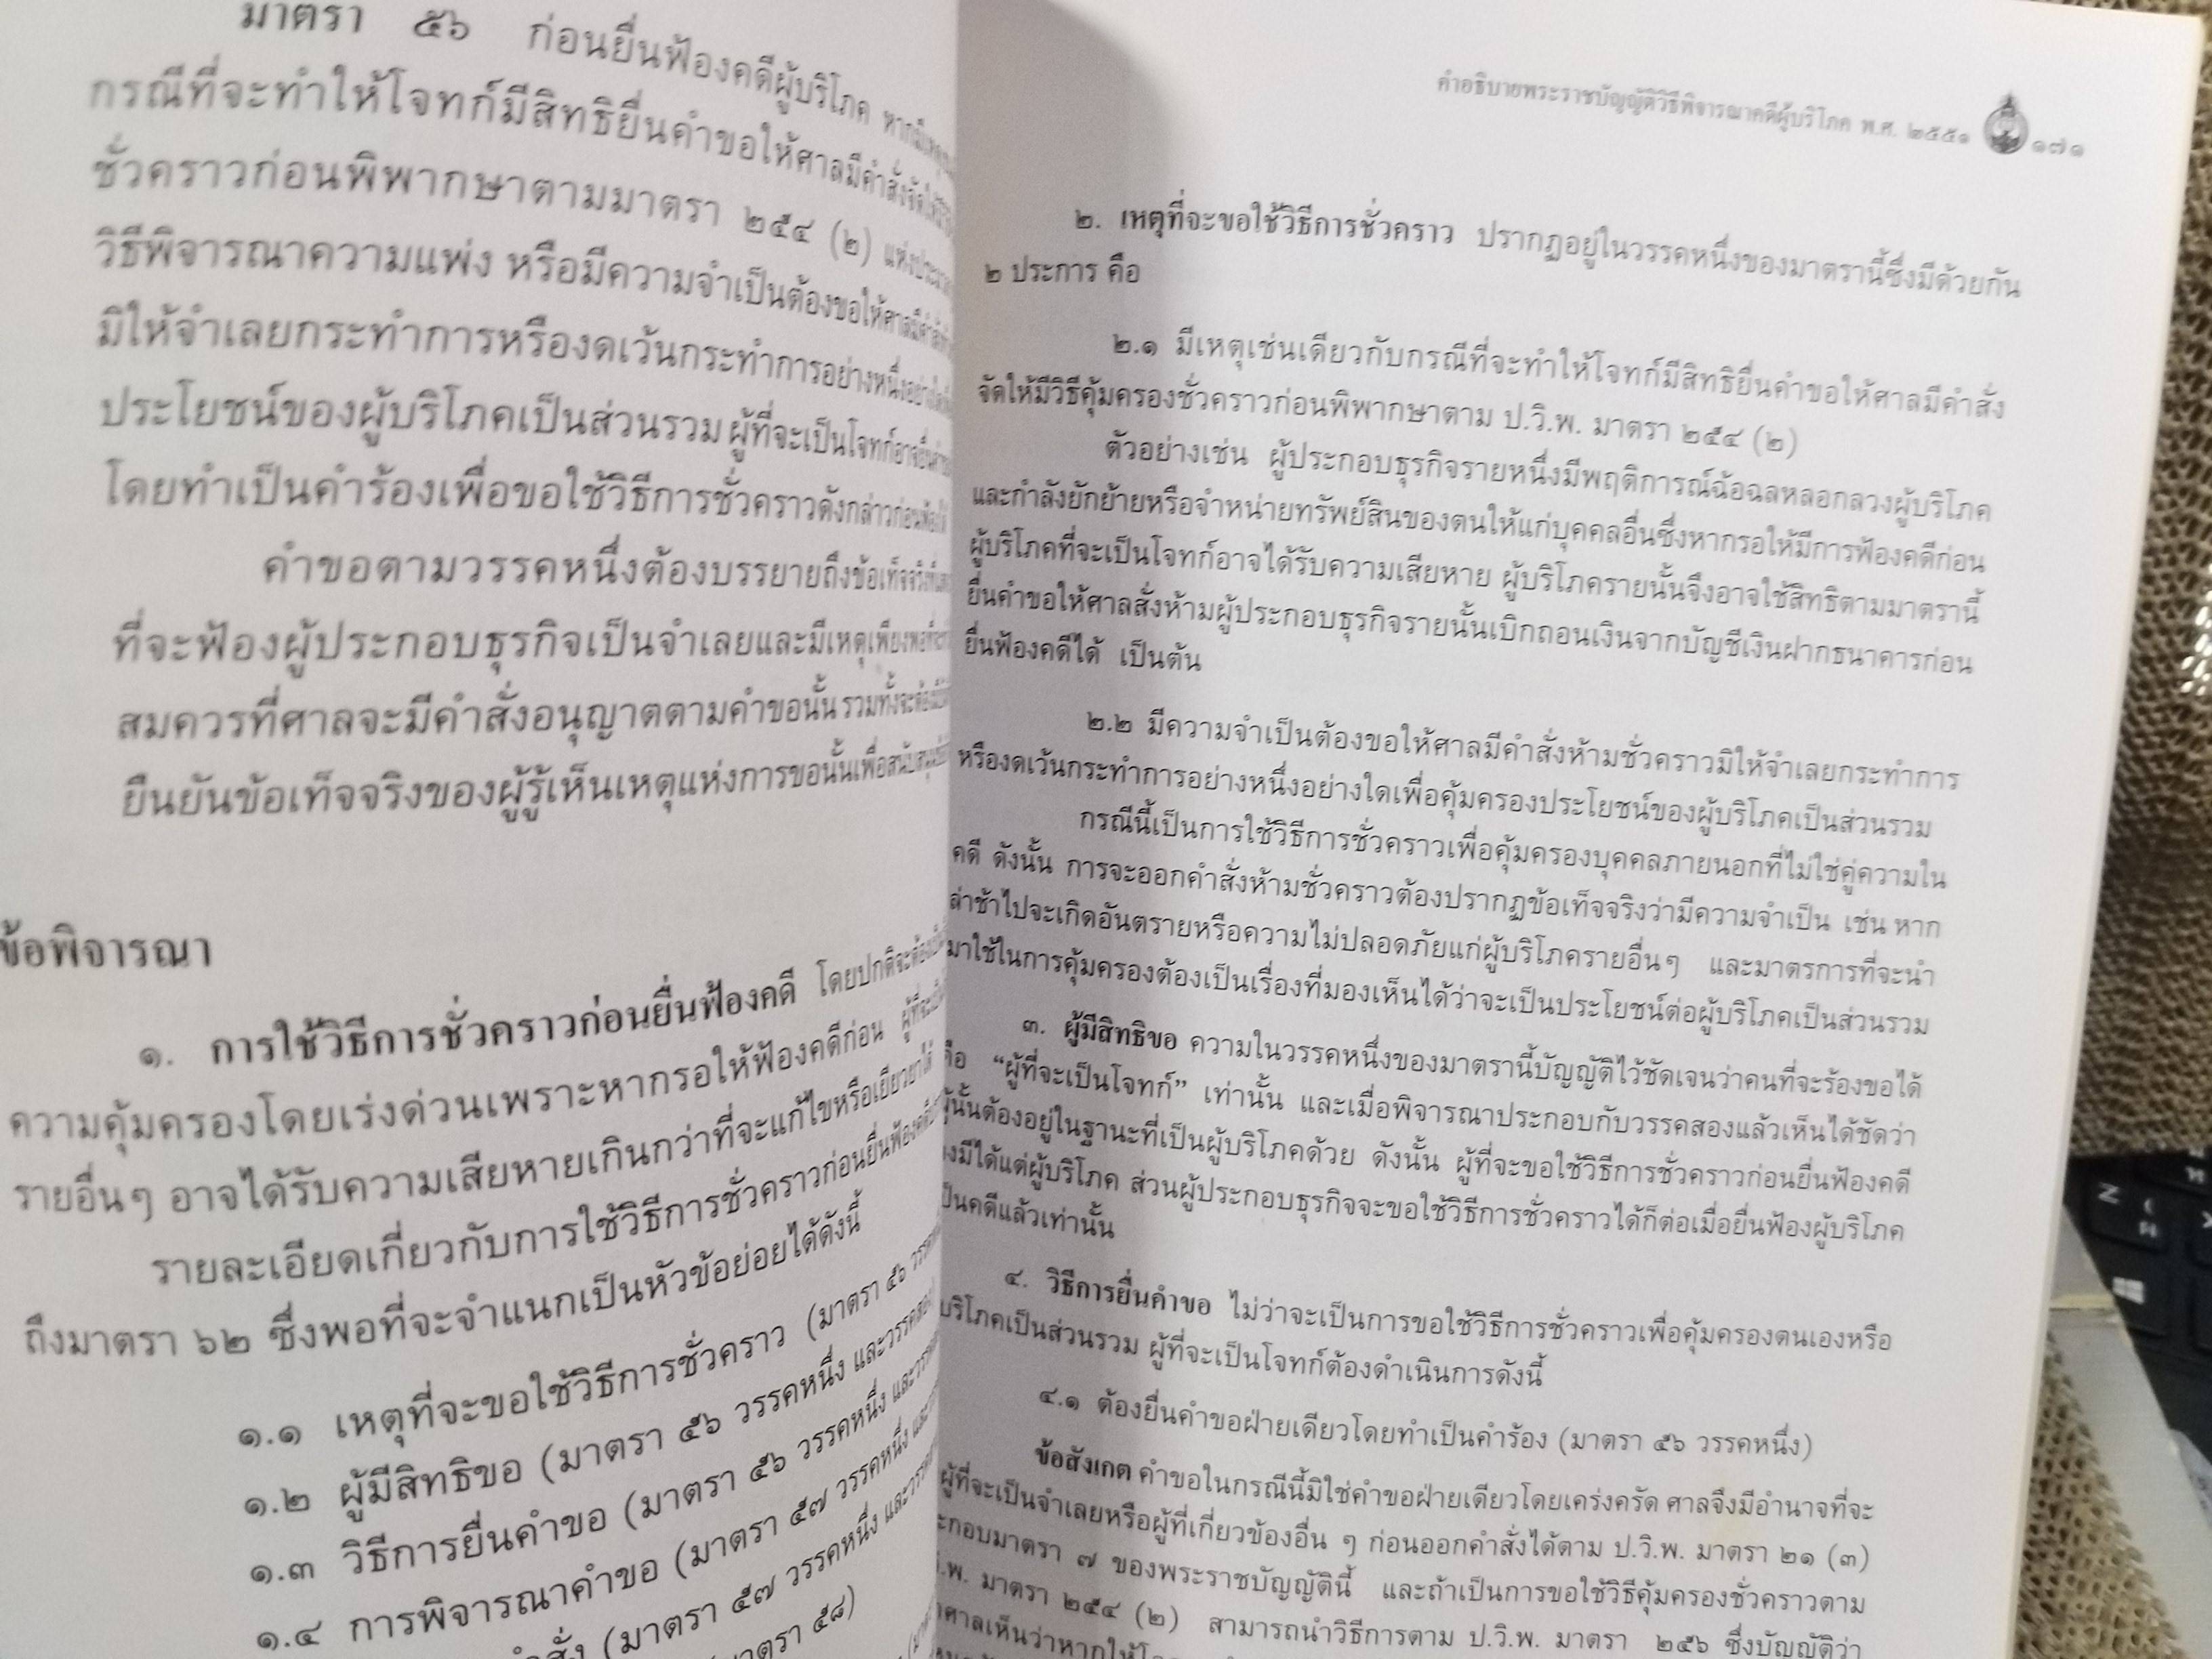 มาตรา ๕๖ ก่อนยื่นฟ้องคดีผู้บริโภค
กรณีที่จะทำให้โจทก์มีสิทธิยื่นคำขอให้ศาลมีคำสั่งจัดให้
ชั่วคราวก่อนพิพากษาตามมาตรา ๒๕๔ (๒)
วิธีพิจารณาความแพ่ง หรือมีความจำเป็นต้องขอให้ศาลมี
มิให้จำเลยกระทำการหรืองดเว้นกระทำการอย่างหนึ่ง
ประโยชน์ของผู้บริโภคเป็นส่วนรวม ผู้ที่จะเป็นโจทก์อาจยื่น
โดยทำเป็นคำร้องเพื่อขอใช้วิธีการชั่วคราวดังกล่าวก่อน
คำขอตามวรรคหนึ่งต้องบรรยายถึงข้อเท็จจริง
ที่จะฟ้องผู้ประกอบธุรกิจเป็นจำเลยและมีเหตุเพียงพอ
สมควรที่ศาลจะมีคำสั่งอนุญาตตามคำขอนั้น รวมทั้งจะต้อง
ยืนยันข้อเท็จจริงของผู้รู้เห็นเหตุแห่งการขอนั้นเพื่อ
ข้อพิจารณา
๑. การใช้วิธีการชั่วคราวก่อนยื่นฟ้องคดี โดยปกติจะต้อง
ความคุ้มครองโดยเร่งด่วนเพราะหากรอให้ฟ้องคดีก่อน
รายอื่นๆ อาจได้รับความเสียหายเกินกว่าที่จะแก้ไขหรือเยียวยาได้
รายละเอียดเกี่ยวกับการใช้วิธีการชั่วคราวก่อนยื่นฟ้องคดี
ถึงมาตรา ๖๒ ซึ่งพอที่จะจำแนกเป็นหัวข้อย่อยได้ดังนี้
๑.๑ เหตุที่จะขอใช้วิธีการชั่วคราว (มาตรา ๕๖
๑.๒ ผู้มีสิทธิขอ (มาตรา ๕๖ วรรคหนึ่ง และวรรคสอง)
๑.๓ วิธีการยื่นคำขอ (มาตรา ๕๖ วรรคหนึ่ง
๑.๔ การพิจารณาคำขอ (มาตรา ๕๗ วรรคหนึ่ง
(มาตรา ๕๗ วรรคหนึ่ง
๕๘)
คำอธิบายพระราชบัญญัติวิธีพิจารณาคดีผู้บริโภค พ.ศ. ๒๕๕๑ ๑๗๑
๒. เหตุที่จะขอใช้วิธีการชั่วคราว ปรากฏอยู่ในวรรคหนึ่งของมาตรานี้ซึ่งมีด้วยกัน
๒ ประการ คือ
๒.๑ มีเหตุเช่นเดียวกับกรณีที่จะทำให้โจทก์มีสิทธิยื่นคำขอให้ศาลมีคำสั่ง
จัดให้มีวิธีคุ้มครองชั่วคราวก่อนพิพากษาตาม ป.วิ.พ. มาตรา ๒๕๔ (๒)
ตัวอย่างเช่น ผู้ประกอบธุรกิจรายหนึ่งมีพฤติการณ์ฉ้อฉลหลอกลวงผู้บริโภค
และกำลังยักย้ายหรือจำหน่ายทรัพย์สินของตนให้แก่บุคคลอื่นซึ่งหากรอให้มีการฟ้องคดีก่อน
ผู้บริโภคที่จะเป็นโจทก์อาจได้รับความเสียหาย ผู้บริโภครายนั้นจึงอาจใช้สิทธิตามมาตรานี้
ยื่นคำขอให้ศาลสั่งห้ามผู้ประกอบธุรกิจรายนั้นเบิกถอนเงินจากบัญชีเงินฝากธนาคารก่อน
ยื่นฟ้องคดีได้ เป็นต้น
๒.๒ มีความจำเป็นต้องขอให้ศาลมีคำสั่งห้ามชั่วคราวมิให้จำเลยกระทำการ
หรืองดเว้นกระทำการอย่างหนึ่งอย่างใดเพื่อคุ้มครองประโยชน์ของผู้บริโภคเป็นส่วนรวม
กรณีนี้เป็นการใช้วิธีการชั่วคราวเพื่อคุ้มครองบุคคลภายนอกที่ไม่ใช่คู่ความใน
คดี ดังนั้น การจะออกคำสั่งห้ามชั่วคราวต้องปรากฏข้อเท็จจริงว่ามีความจำเป็น เช่น หาก
ล่าช้าไปจะเกิดอันตรายหรือความไม่ปลอดภัยแก่ผู้บริโภครายอื่นๆ และมาตรการที่จะนำ
มาใช้ในการคุ้มครองต้องเป็นเรื่องที่มองเห็นได้ว่าจะเป็นประโยชน์ต่อผู้บริโภคเป็นส่วนรวม
๓. ผู้มีสิทธิขอ ความในวรรคหนึ่งของมาตรานี้บัญญัติไว้ชัดเจนว่าคนที่จะร้องขอได้
คือ “ผู้ที่จะเป็นโจทก์” เท่านั้น และเมื่อพิจารณาประกอบกับวรรคสองแล้วเห็นได้ชัดว่า
ผู้นั้นต้องอยู่ในฐานะที่เป็นผู้บริโภคด้วย ดังนั้น ผู้ที่จะขอใช้วิธีการชั่วคราวก่อนยื่นฟ้องคดี
งมีได้แต่ผู้บริโภค ส่วนผู้ประกอบธุรกิจจะขอใช้วิธีการชั่วคราวได้ก็ต่อเมื่อยื่นฟ้องผู้บริโภค
เป็นคดีแล้วเท่านั้น
๔. วิธีการยื่นคำขอ ไม่ว่าจะเป็นการขอใช้วิธีการชั่วคราวเพื่อคุ้มครองตนเองหรือ
บริโภคเป็นส่วนรวม ผู้ที่จะเป็นโจทก์ต้องดำเนินการดังนี้
๔.๑ ต้องยื่นคำขอฝ่ายเดียวโดยทำเป็นคำร้อง (มาตรา ๕๖ วรรคหนึ่ง)
ข้อสังเกต คำขอในกรณีนี้มิใช่คำขอฝ่ายเดียวโดยเคร่งครัด ศาลจึงมีอำนาจที่จะ
ผู้ที่จะเป็นจำเลยหรือผู้ที่เกี่ยวข้องอื่น ๆ ก่อนออกคำสั่งได้ตาม ป.วิ.พ. มาตรา ๒๑ (๓)
ะกอบมาตรา ๗ ของพระราชบัญญัตินี้ และถ้าเป็นการขอใช้วิธีคุ้มครองชั่วคราวตาม
.พ. มาตรา ๒๕๔ (๒) สามารถนำวิธีการตาม ป.วิ.พ. มาตรา ๒๕๖ ซึ่งบัญญัติว่า
ศาลเห็นว่าหากให้